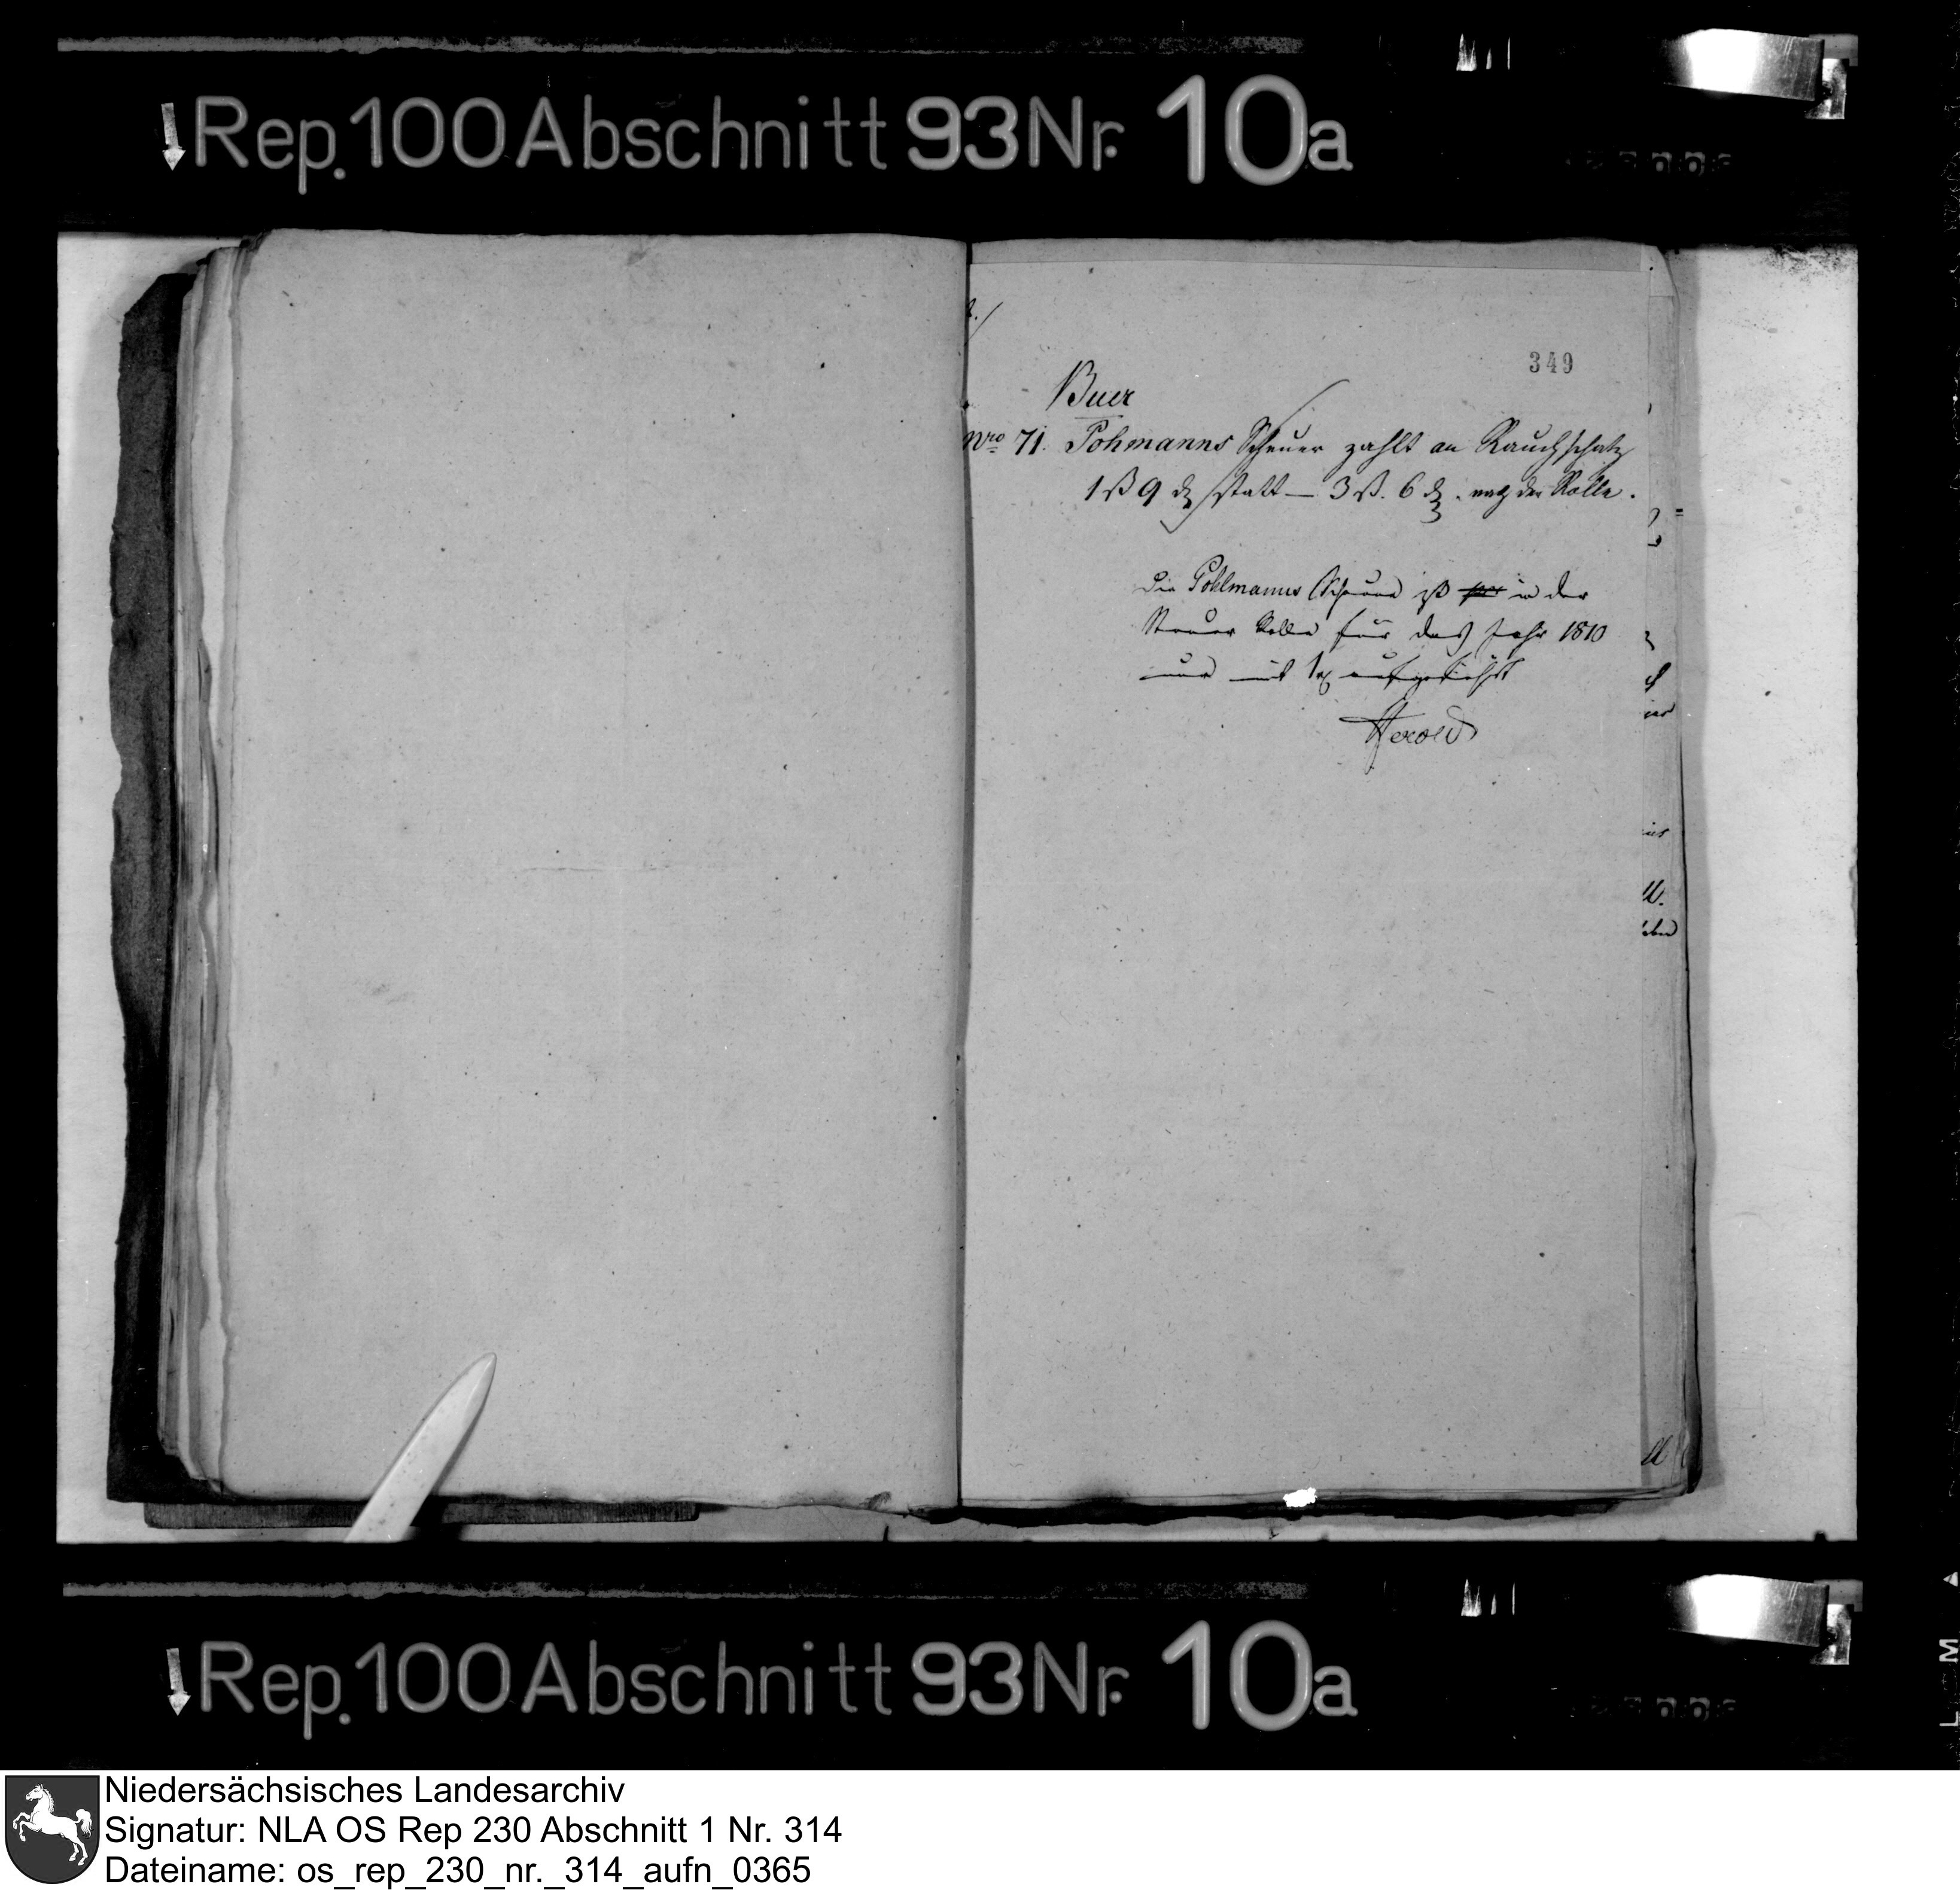 Rep. 100 Abschnitt 93 Nr. 10a
349
Buer
Nro 71. Pohmanns Scheuer zahlt an Rauchschatz
1 ß 9 d statt — 3 ß. 6 d. nach der Rolle.
Die Pohlmanns Scheune ist in der
Steuer Rolle für das Jahr 1810
nur mit aufgeführt
Herold
Rep. 100 Abschnitt 93 Nr. 10a
Niedersächsisches Landesarchiv
Signatur: NLA OS Rep 230 Abschnitt 1 Nr. 314
Dateiname: os_rep_230_nr._314_aufn_0365